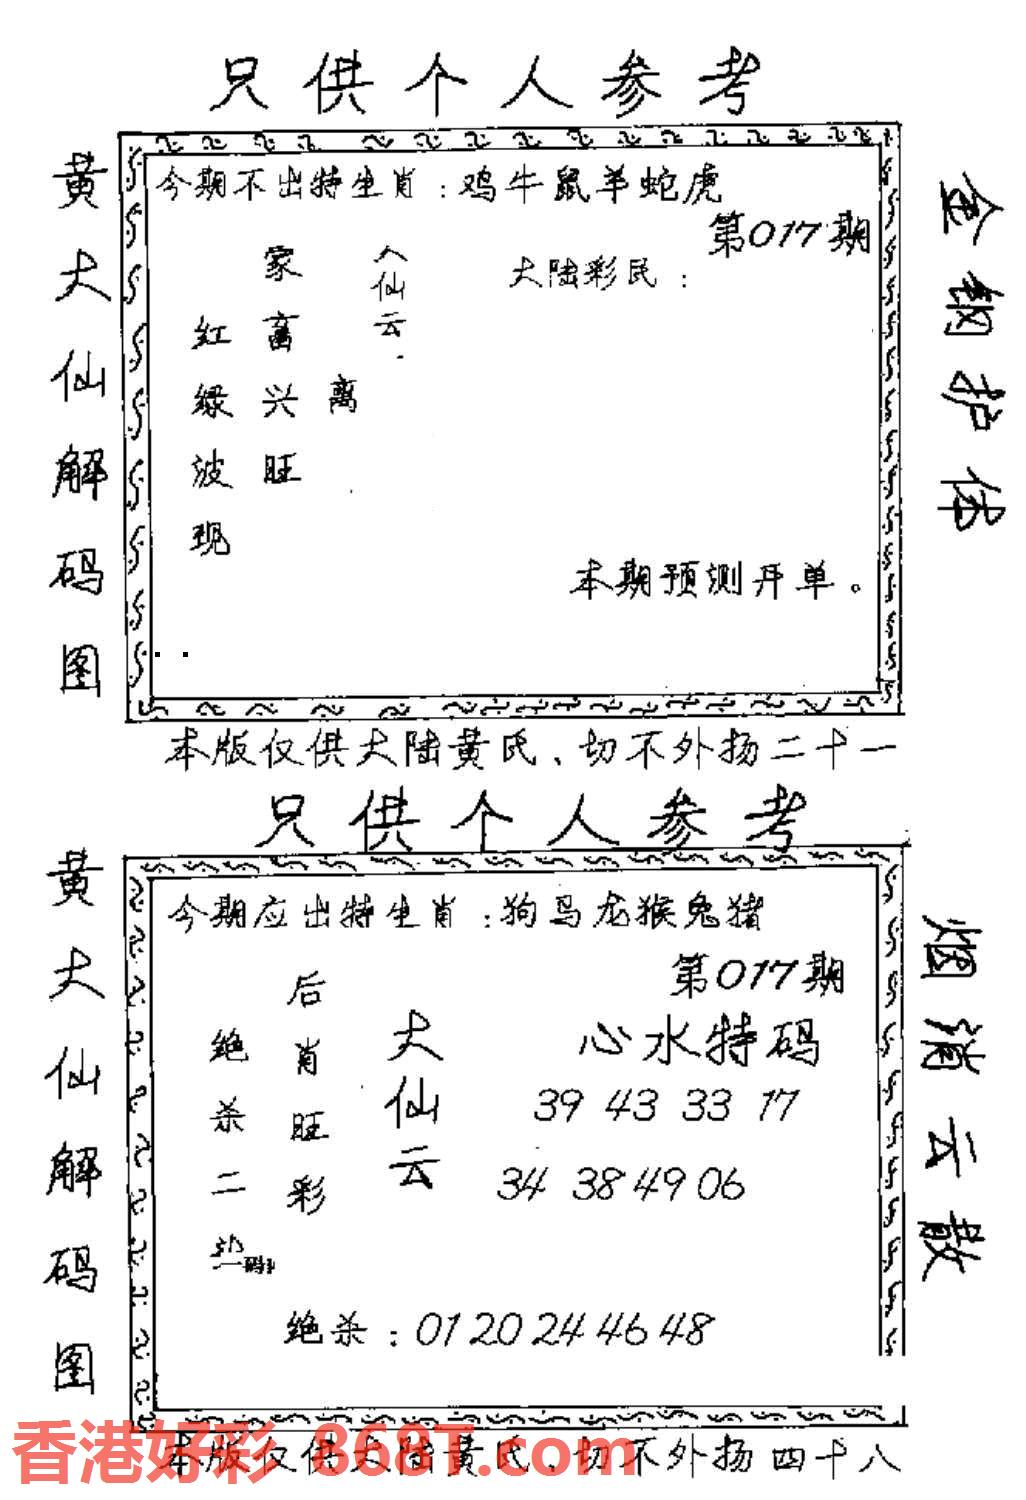 只供个人参考
黄大仙解码图
今期不出特生肖：鸡牛鼠羊蛇虎
第017期
大陆彩民：
大仙云
离
家畜兴旺
红绿波现
本期预测开单。
金钢护体
本版仅供大陆黄氏、切不外扬二十一
只供个人参考
黄大仙解码图
今期应出特生肖：狗马龙猴兔猪
第017期
心水特码
39 43 33 17
34 38 49 06
大仙云
后肖旺彩
绝杀二
绝杀：01 20 24 46 48
烟消云散
本版仅供大陆黄氏、切不外扬四十八
香港好彩 868T.com